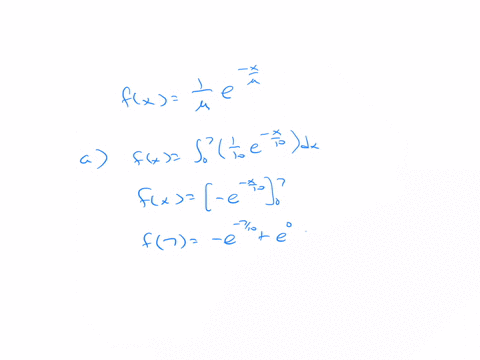 f(x) = 1/μ e^(-x/μ)
a) f(x) = ∫₀⁷ (1/10 e^(-x/10)) dx
f(x) = [-e^(-x/10)]₀⁷
f(7) = -e^(-7/10) + e⁰